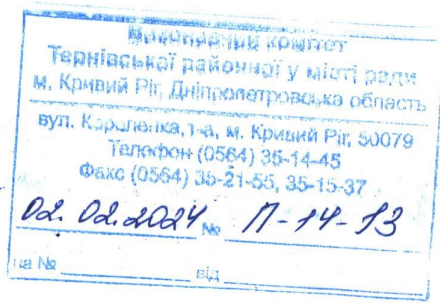 Виконавчий комітет
Тернівської районної у місті ради
м. Кривий Ріг, Дніпропетровська область
вул. Короленка, 1-а, м. Кривий Ріг, 50079
Телефон (0564) 35-14-45
Факс (0564) 35-21-55, 35-15-37
02.02.2024 № П-14-13
на № від